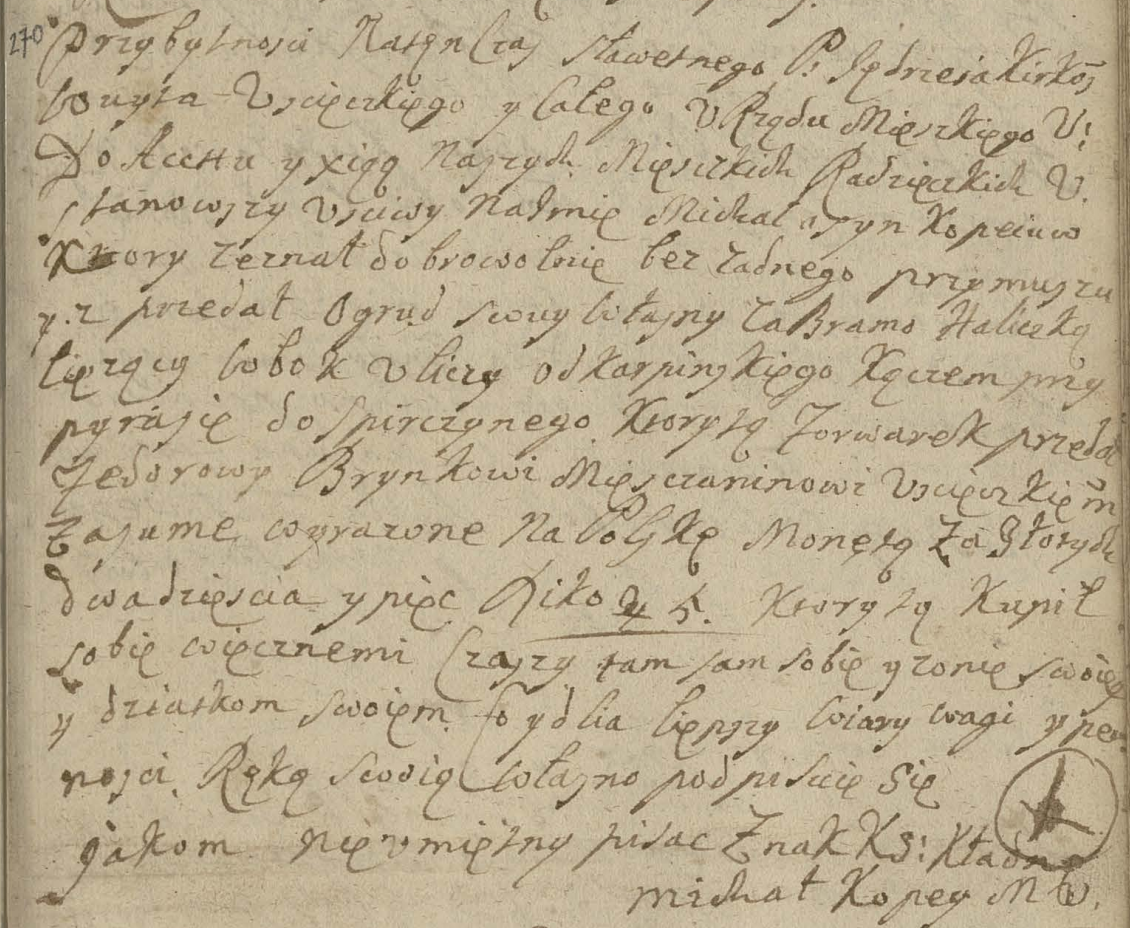 270
Przybytnosci Natęn Czas sławetnego P: Jędrzeia Kirkos
woyta Uscięczkięgo y Całego URzędu Mięszkięgo U:
Do Acctu y xięg Naszych Mięszkich Radzięczkich U.
stanowszy Uściwy NaImię Michał syn Kopeiuw
Ktory zeznał dobrowolnię bez żadnego przymuszu
y z przedał Ogrud swuy własny zaBramo Haliczką
lięzący wbok Uliczy od Karpinskięgo Kęczem przy
pyrasię do spirczynego Ktorytą Forwarek przedał
Fedorowy Brynkowi Mięsczaninowi Uscięczkięm
za sume wyrazone Na Polskę Monętą Za Złotych
dwadzięscia y pięc Diko 25. Ktorytą Kupił
sobię więcznemi Czaszy tam sam sobię y zonię swoięy
y dziatkom swoięm Co y dlia liępszy wiary wagi y pew
nosci Ręką swoią własno podpiscię Się
jakom nięumiętny pisac Znak KS: Kładne
michał Kopey Mw.